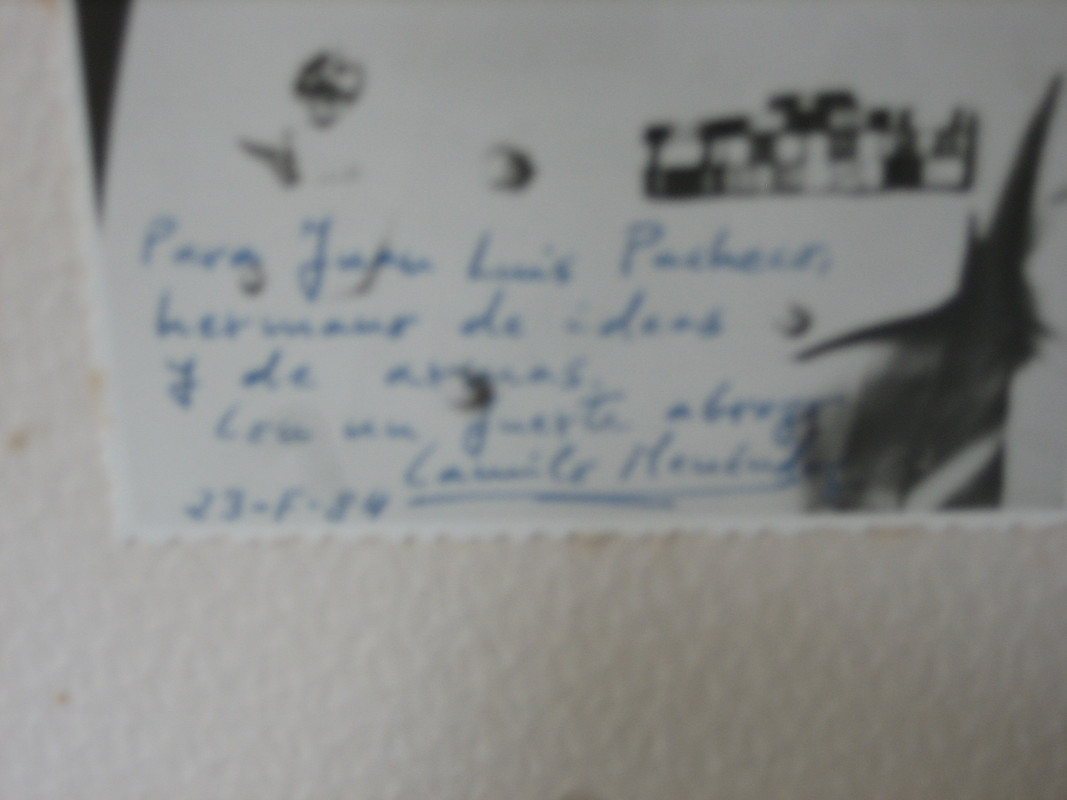 Para Juan Luis Pacheco,
hermano de ideas
y de armas.
Con un fuerte abrazo
Camilo Menéndez
23-F-84